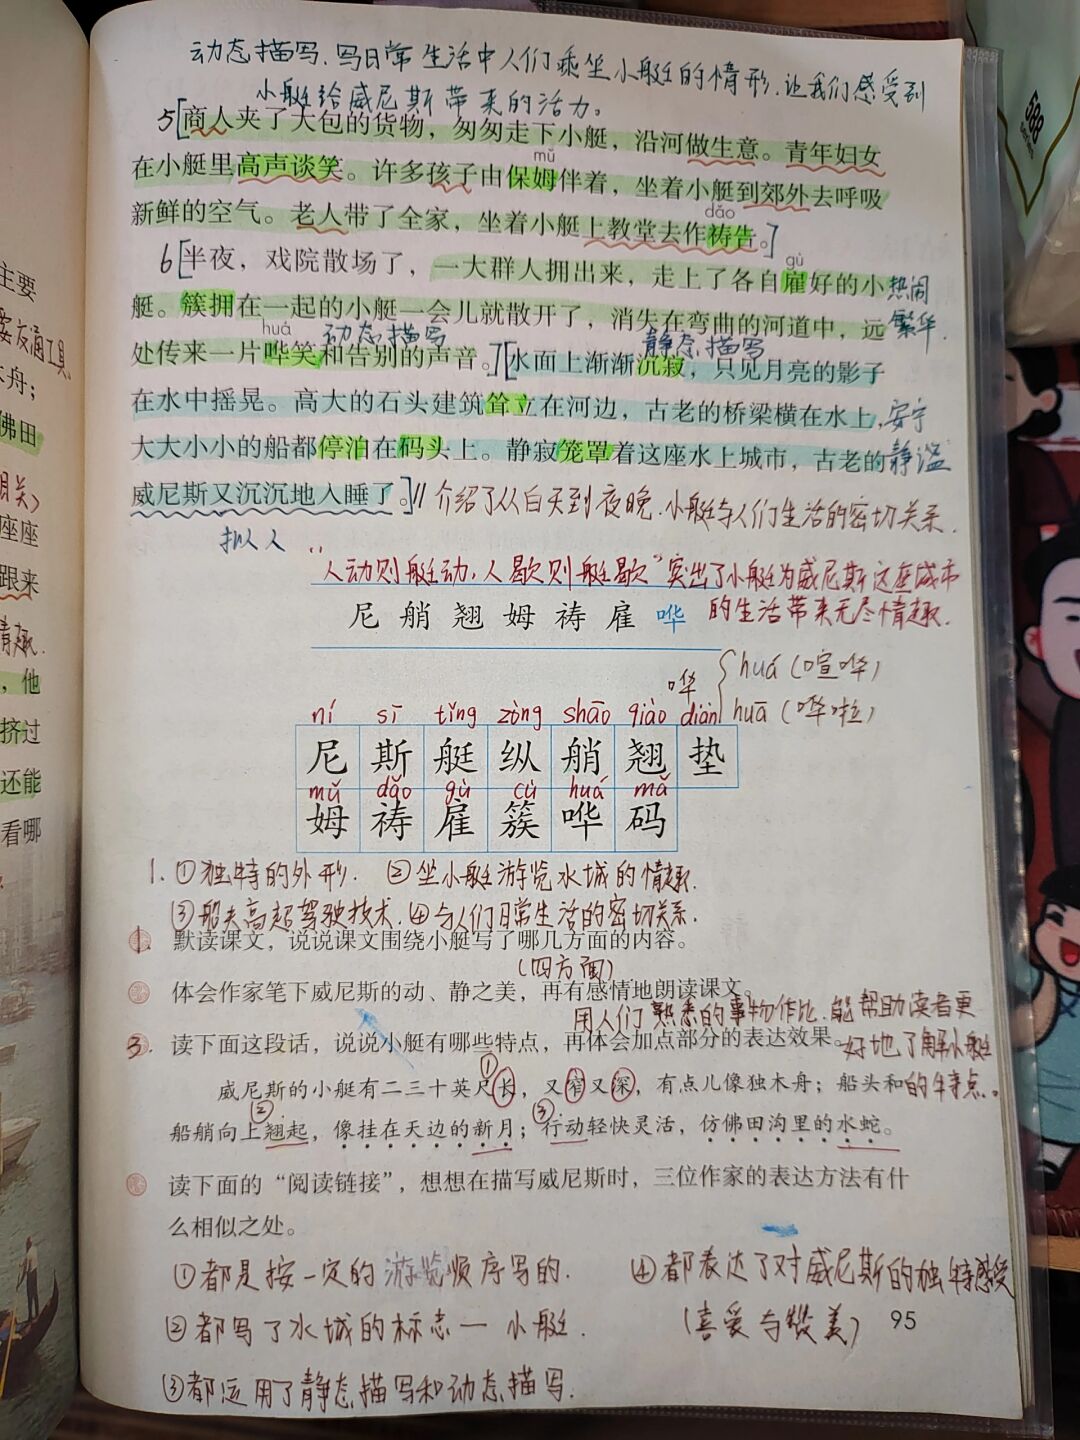 动态描写、写日常生活中人们乘坐小艇的情形,让我们感受到
小艇给威尼斯带来的活力。
5[商人夹了大包的货物，匆匆走下小艇，沿河做生意。青年妇女
在小艇里高声谈笑。许多孩子由保姆伴着，坐着小艇到郊外去呼吸
mǔ
新鲜的空气。老人带了全家，坐着小艇上教堂去作祷告。]
dǎo
6[半夜，戏院散场了，一大群人拥出来，走上了各自雇好的小
gù
热闹
艇。簇拥在一起的小艇一会儿就散开了，消失在弯曲的河道中，远
繁华.
huá
动态描写
静态描写
处传来一片哗笑和告别的声音。][水面上渐渐沉寂，只见月亮的影子
在水中摇晃。高大的石头建筑耸立在河边，古老的桥梁横在水上，
安宁
大大小小的船都停泊在码头上。静寂笼罩着这座水上城市，古老的
静谧
威尼斯又沉沉地入睡了。]// 介绍了从白天到夜晚.小艇与人们生活的密切关系.
拟人
“人动则艇动,人歇则艇歇”突出了小艇为威尼斯这座城市
的生活带来无尽情趣.
尼 艄 翘 姆 祷 雇 哗
哗 { huá (喧哗)
huā (哗啦)
ní sī tǐng zòng shāo qiào diàn
尼 斯 艇 纵 艄 翘 垫
mǔ dǎo gù cù huá mǎ
姆 祷 雇 簇 哗 码
1. ①独特的外形. ②坐小艇游览水城的情趣.
③船夫高超驾驶技术.④与人们日常生活的密切关系.
1. 默读课文，说说课文围绕小艇写了哪几方面的内容。
(四方面)
体会作家笔下威尼斯的动、静之美，再有感情地朗读课文。
用人们熟悉的事物作比.能帮助读者更
3. 读下面这段话，说说小艇有哪些特点，再体会加点部分的表达效果。
好地了解小艇
的特点。
①
威尼斯的小艇有二三十英尺长，又窄又深，有点儿像独木舟；船头和
② ③
船艄向上翘起，像挂在天边的新月；行动轻快灵活，仿佛田沟里的水蛇。
读下面的“阅读链接”，想想在描写威尼斯时，三位作家的表达方法有什
么相似之处。
①都是按一定的游览顺序写的.
④都表达了对威尼斯的独特感受
(喜爱与赞美)
②都写了水城的标志一 小艇.
95
③都运用了静态描写和动态描写.
主要
交通工具
木舟；
佛田
座座
跟来
情趣.
，他
挤过
还能
看哪
588